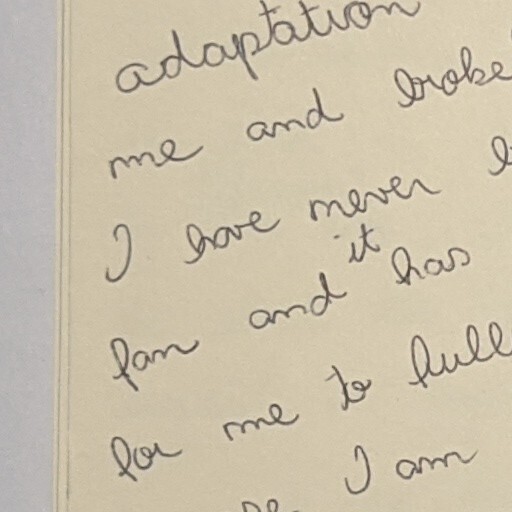 adaptation
me and broke
I have never
fan and it has
for me to full
I am